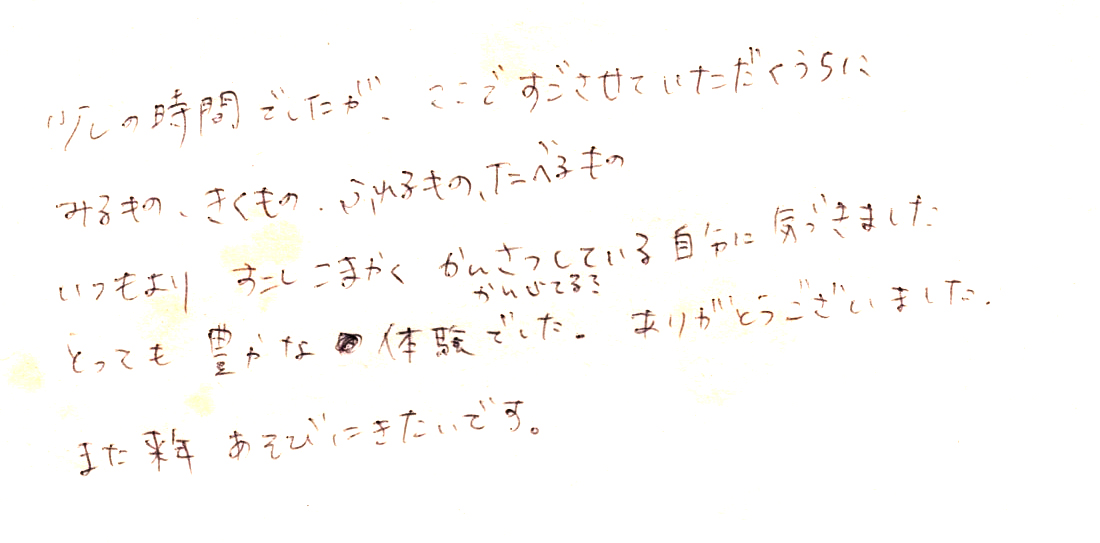 少しの時間でしたが、ここですごさせていただくうちに
みるもの、きくもの、ふれるもの、たべるもの
いつもより すこしこまかく かんさつしている自分に気づきました
とっても 豊かな 体験でした。ありがとうございました。
また来年 あそびにきたいです。